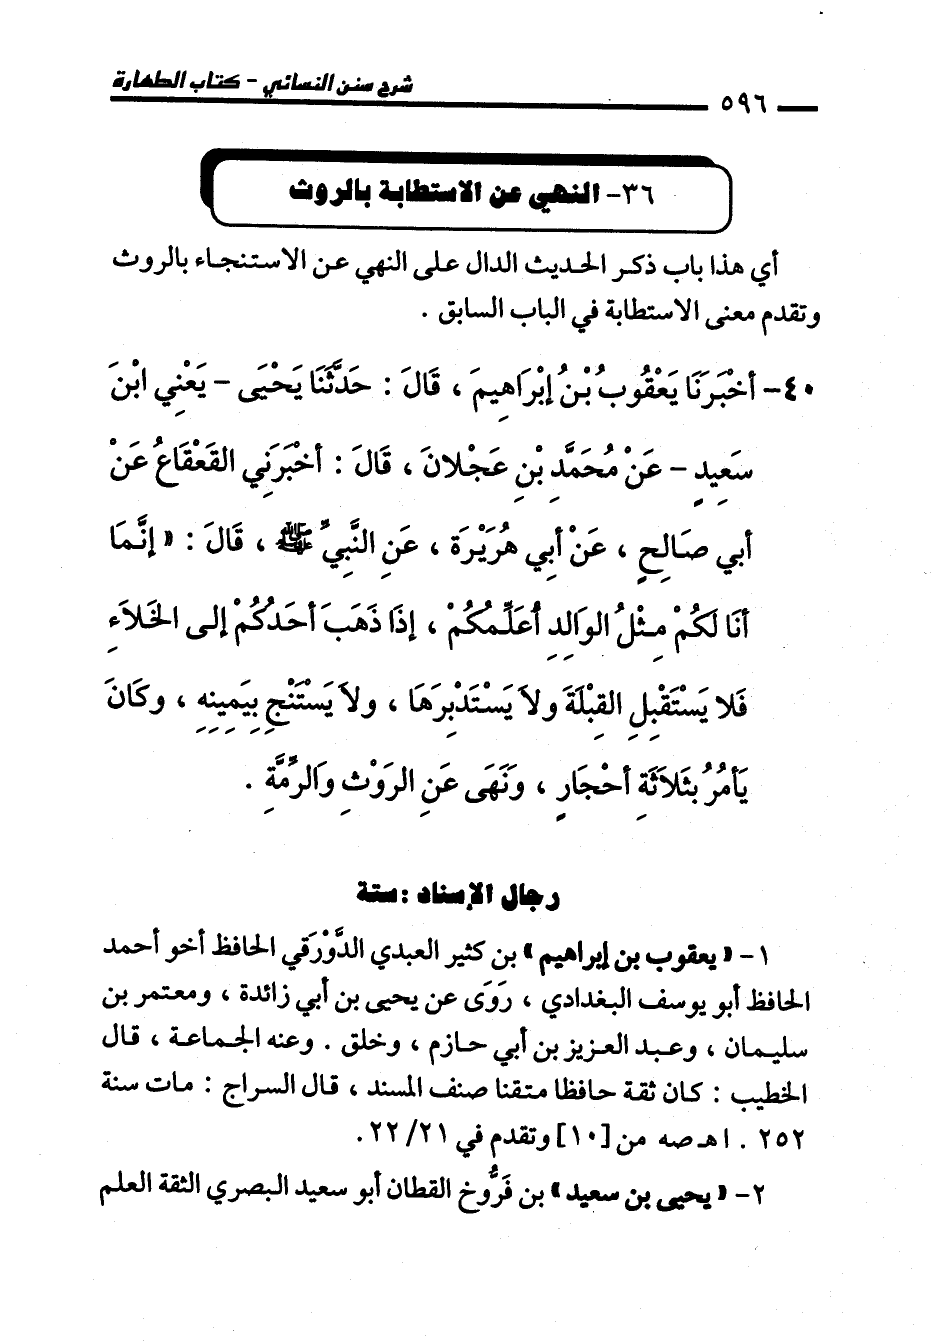 شرح سنن النسائي - كتاب الطهارة
٥٩٦
٣٦- النهي عن الاستطابة بالروث
أي هذا باب ذكر الحديث الدال على النهي عن الاستنجاء بالروث
وتقدم معنى الاستطابة في الباب السابق .
٤٠- أخْبَرَنَا يَعْقُوبُ بْنُ إبْرَاهِيمَ ، قَالَ : حَدَّثَنَا يَحْيَى - يَعْنِي ابْنَ
سَعِيدٍ - عَنْ مُحَمَّدِ بْنِ عَجْلانَ ، قَالَ : أخْبَرَنِي القَعْقَاعُ عَنْ
أبي صَالِحٍ ، عَنْ أبِي هُرَيْرَةَ ، عَنِ النَّبِيِّ ﷺ ، قَالَ : « إنَّمَا
أنَا لَكُمْ مِثْلُ الوَالِدِ أُعَلِّمُكُمْ ، إذَا ذَهَبَ أحَدُكُمْ إلى الخَلاَءِ
فَلا يَسْتَقْبِلِ القِبْلَةَ ولاَ يَسْتَدْبِرَهَا ، ولاَ يَسْتَنْجِ بِيَمِينِهِ ، وكَانَ
يَأمُرُ بثَلاثَةِ أحْجَارٍ ، وَنَهَى عَنِ الرَوْثِ والرِّمَّةِ .
رجال الإسناد : ستة
١- « يعقوب بن إبراهيم » بن كثير العبدي الدَّوْرَقي الحافظ أخو أحمد
الحافظ أبو يوسف البغدادي ، رَوَى عن يحيى بن أبي زائدة ، ومعتمر بن
سليمان ، وعبد العزيز بن أبي حازم ، وخلق . وعنه الجماعة ، قال
الخطيب : كان ثقة حافظا متقنا صنف المسند ، قال السراج : مات سنة
٢٥٢ . اهـ صه من [١٠] وتقدم في ٢١/ ٢٢.
٢- « يحيى بن سعيد » بن فَرُّوخ القطان أبو سعيد البصري الثقة العلم